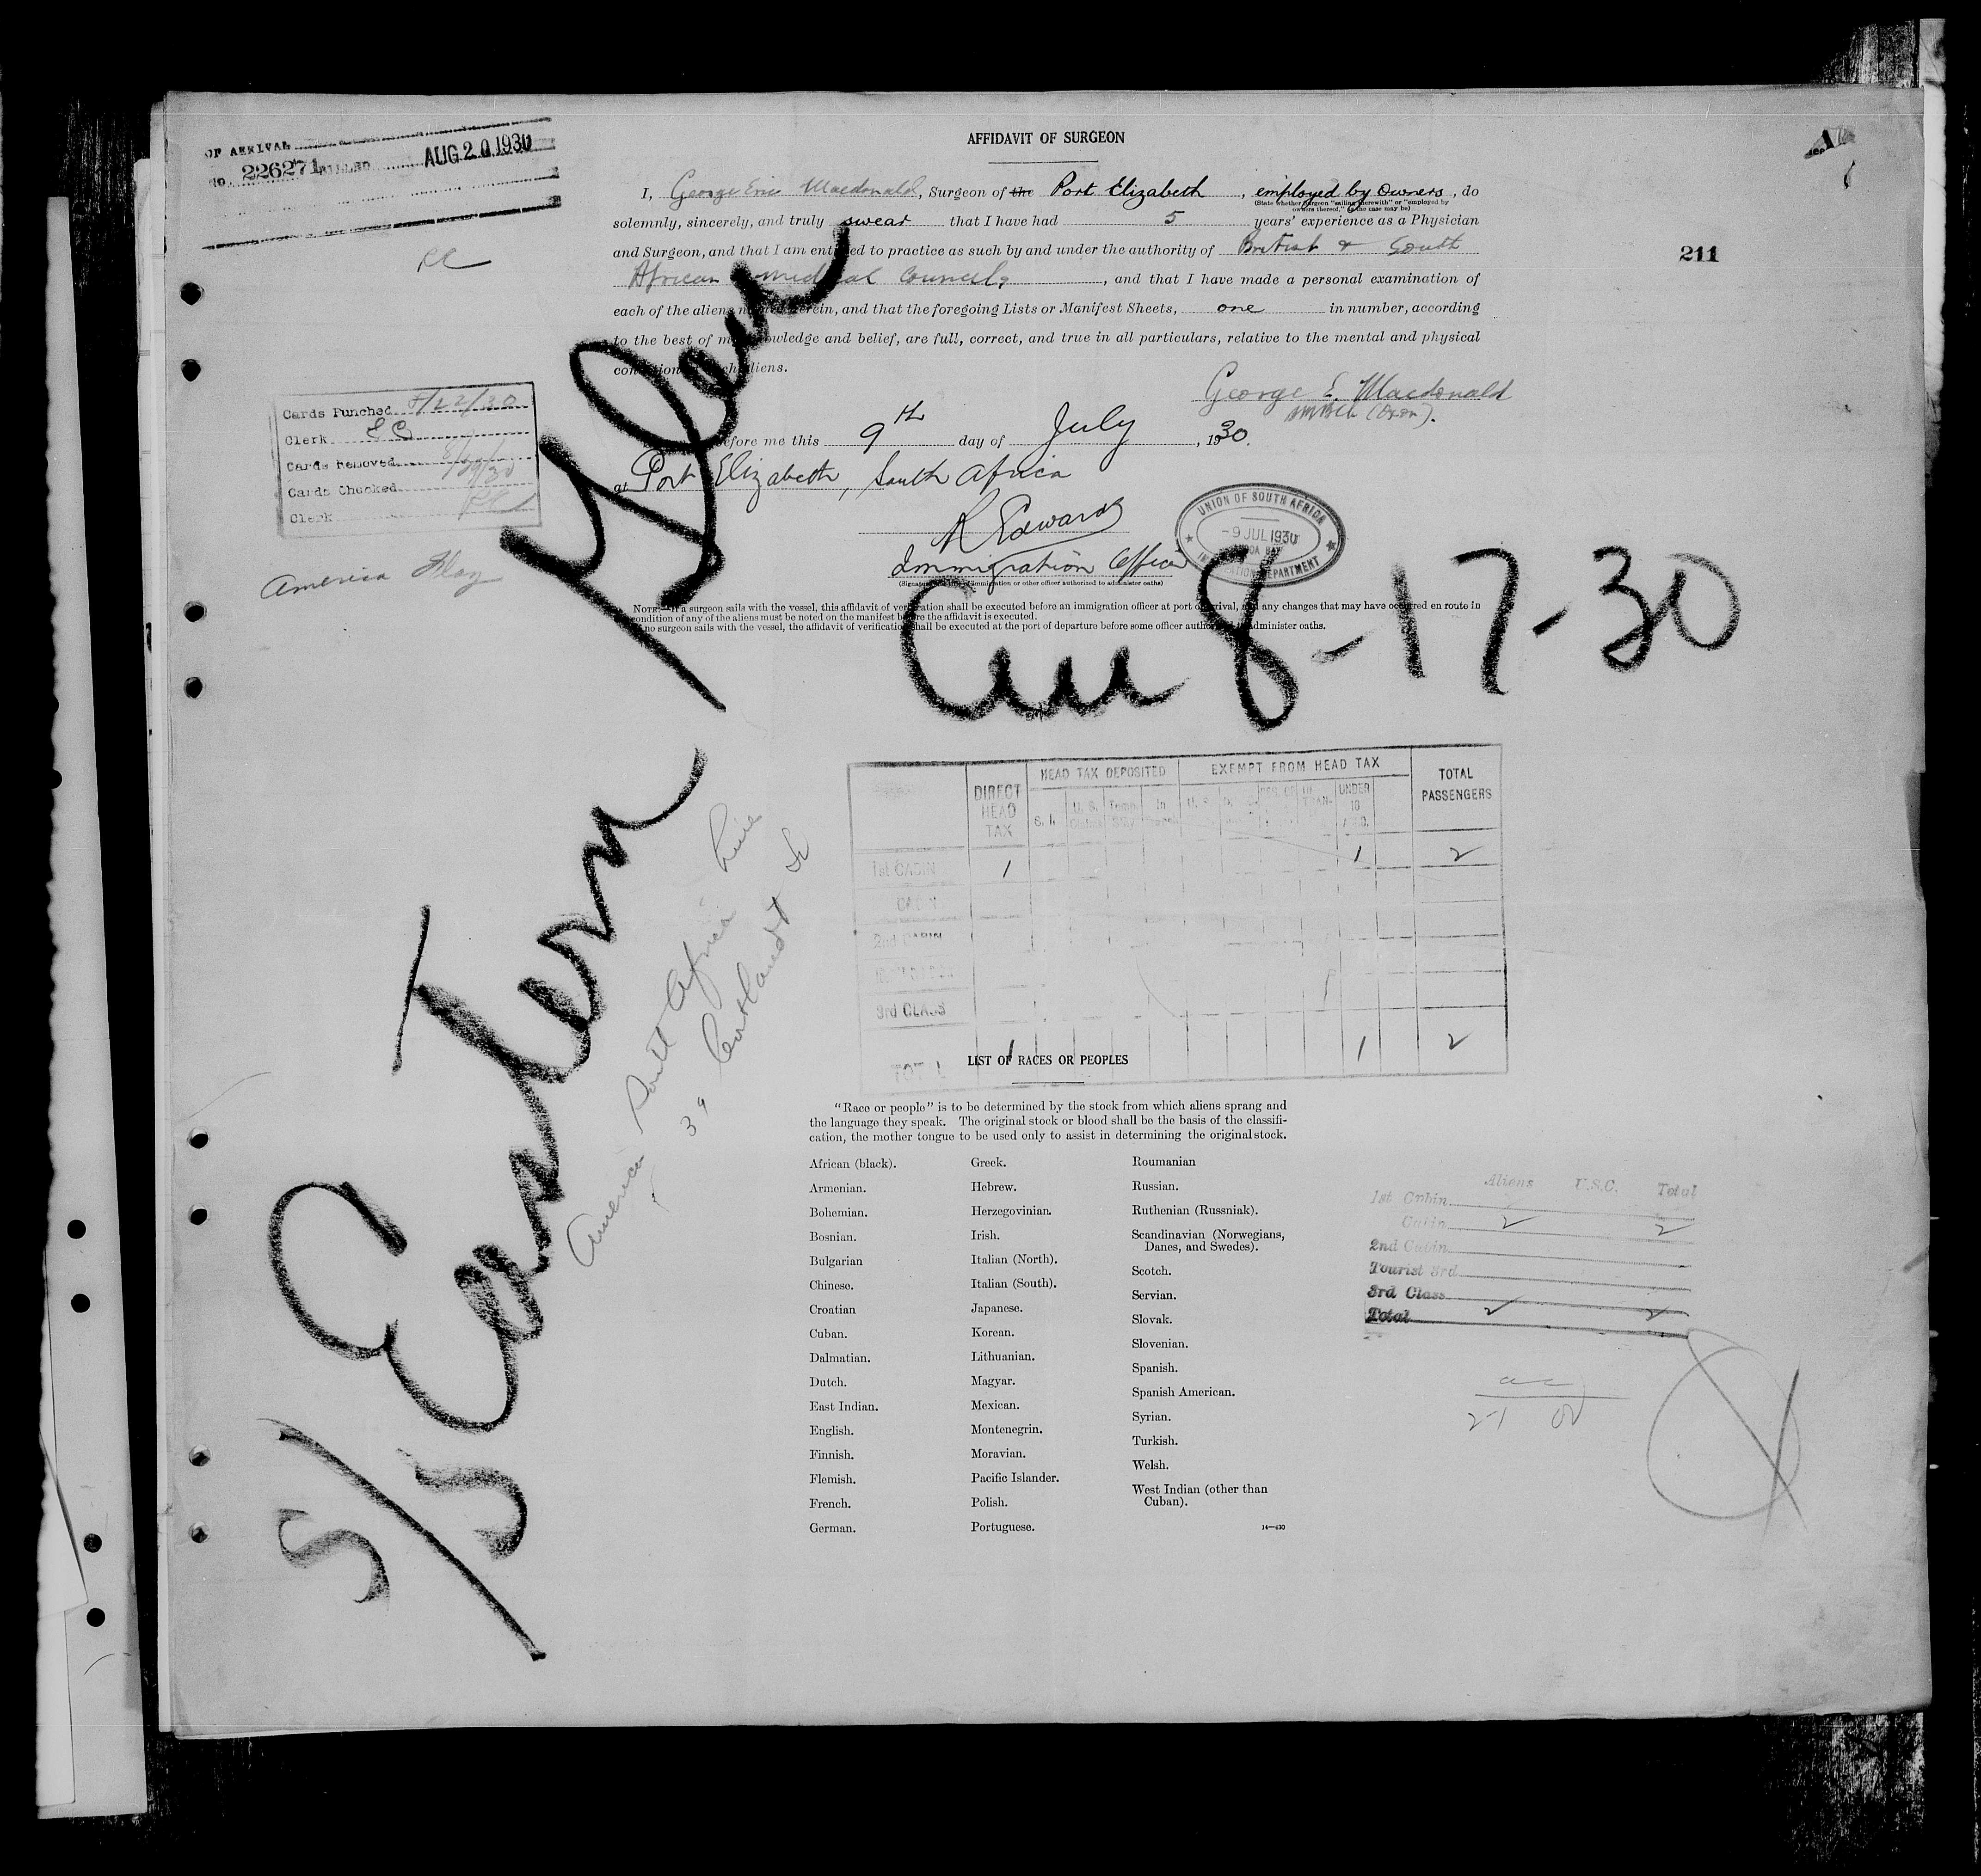 AFFIDAVIT OF SURGEON
OF ARRIVAL
No. 226271 FILLED AUG 20 1930
211
I, George Eric Macdonald, Surgeon of the Port Elizabeth, employed by Owners, do
(State whether surgeon "sailing therewith" or "employed by
owners thereof," as the case may be)
solemnly, sincerely, and truly swear that I have had 5 years' experience as a Physician
and Surgeon, and that I am entitled to practice as such by and under the authority of British & South
African medical Councils, and that I have made a personal examination of
each of the aliens named herein, and that the foregoing Lists or Manifest Sheets, one in number, according
to the best of my knowledge and belief, are full, correct, and true in all particulars, relative to the mental and physical
condition of such aliens.
George E. Macdonald
BM BCh (Oxon).
before me this 9th day of July, 1930.
at Port Elizabeth, South Africa
R Edwards
Immigration Officer
(Signature of immigration or other officer authorized to administer oaths)
UNION OF SOUTH AFRICA
-9 JUL 1930
ALGOA BAY
IMMIGRATION DEPARTMENT
Cards Punched 8/22/30
Clerk
Cards Removed
Cards Checked
Clerk
America Flag
NOTE.—If a surgeon sails with the vessel, this affidavit of verification shall be executed before an immigration officer at port of arrival, and any changes that may have occurred en route in
condition of any of the aliens must be noted on the manifest before the affidavit is executed.
If no surgeon sails with the vessel, the affidavit of verification shall be executed at the port of departure before some officer authorized to administer oaths.
S/S Eastern Glen
Arr 8-17-30
American South Africa Line
39 Cortlandt St
DIRECT HEAD TAX
HEAD TAX DEPOSITED
EXEMPT FROM HEAD TAX
UNDER 16
TOTAL PASSENGERS
1st CABIN 1 1 2
CABIN
2nd CABIN
3rd CLASS
TOTAL 1 1 2
LIST OF RACES OR PEOPLES
"Race or people" is to be determined by the stock from which aliens sprang and
the language they speak. The original stock or blood shall be the basis of the classifi-
cation, the mother tongue to be used only to assist in determining the original stock.
African (black).
Armenian.
Bohemian.
Bosnian.
Bulgarian
Chinese.
Croatian
Cuban.
Dalmatian.
Dutch.
East Indian.
English.
Finnish.
Flemish.
French.
German.
Greek.
Hebrew.
Herzegovinian.
Irish.
Italian (North).
Italian (South).
Japanese.
Korean.
Lithuanian.
Magyar.
Mexican.
Montenegrin.
Moravian.
Pacific Islander.
Polish.
Portuguese.
Roumanian
Russian.
Ruthenian (Russniak).
Scandinavian (Norwegians,
Danes, and Swedes).
Scotch.
Servian.
Slovak.
Slovenian.
Spanish.
Spanish American.
Syrian.
Turkish.
Welsh.
West Indian (other than
Cuban).
14—430
Aliens U.S.C. Total
1st Cabin
Cabin 2 2
2nd Cabin
Tourist 3rd
3rd Class
Total 2 2